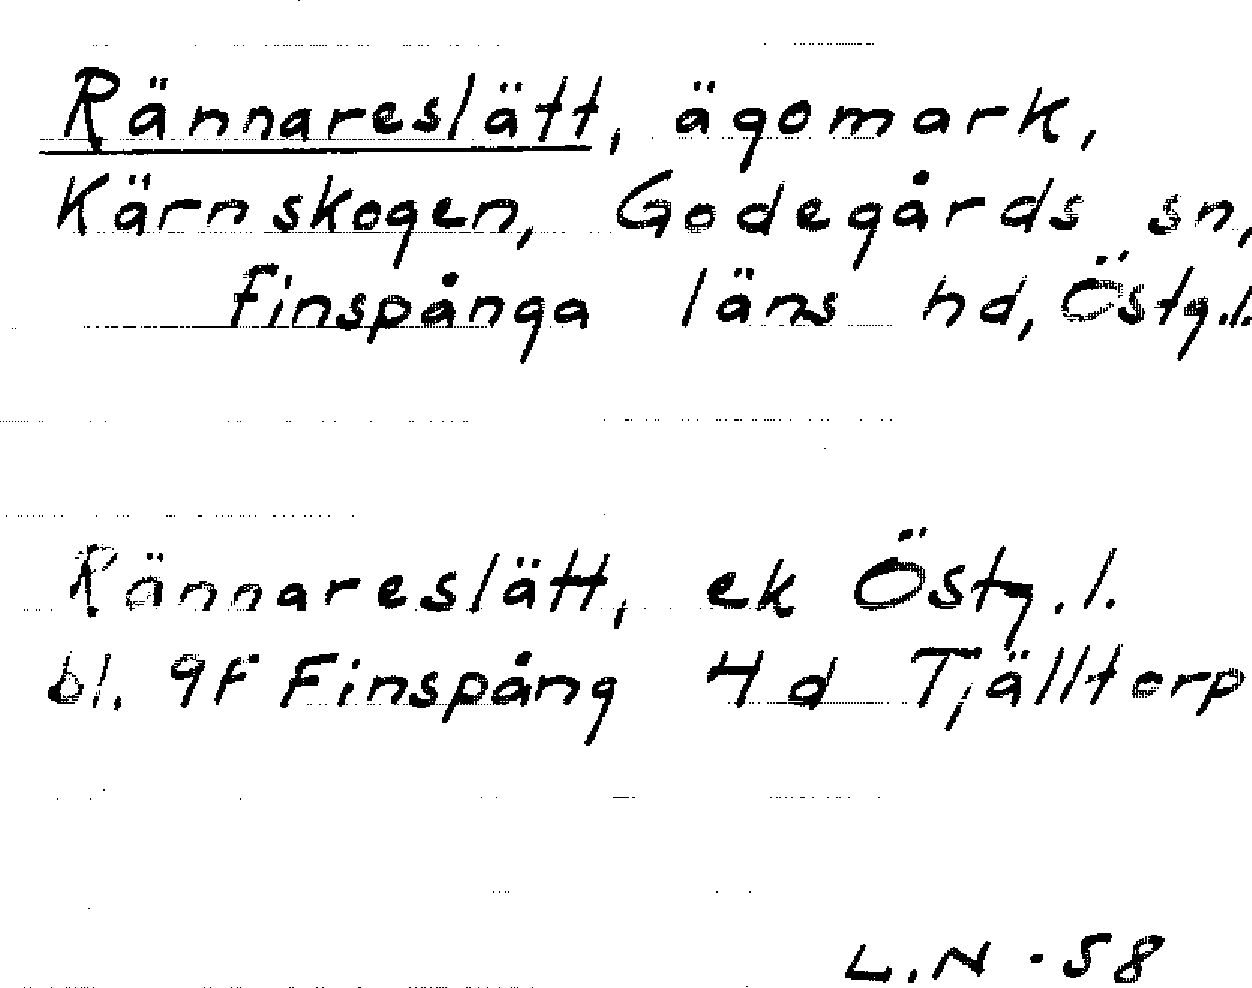 Rännareslätt, ägomark,
Kärnskogen, Godegårds sn,
Finspånga läns hd, Östg.l.
Rännareslätt, ek Östg.l.
bl. 9F Finspång 4d Tjälltorp
L.N -58